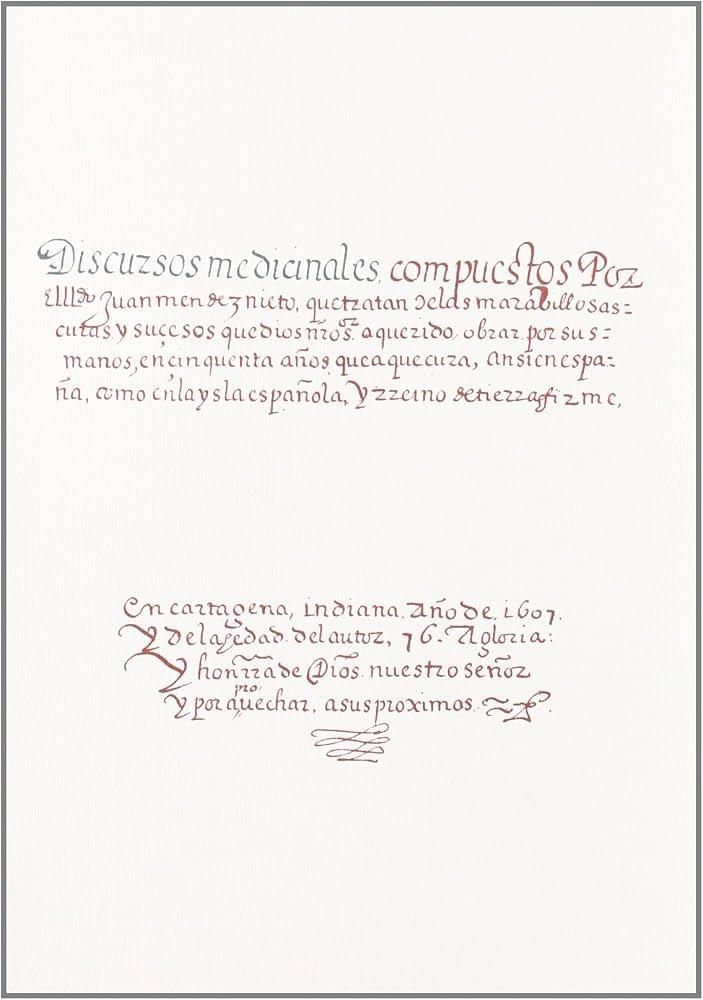 Discursos medicinales, compuestos Por
El lldo Juan mendez nieto, que tratan de las marabillosas=
curas y suçesos que dios nros.or a querido obrar por sus=
manos, en çinquenta años que a que cura, ansi en espa=
ña, como en la ysla española, Y rreino de tierra firme,
En cartagena, indiana. Año de, 1607.
Y de la hedad del autor, 76. A gloria:
Y honrra de Dios nuestro señor
pro
y por auechar, a sus proximos.